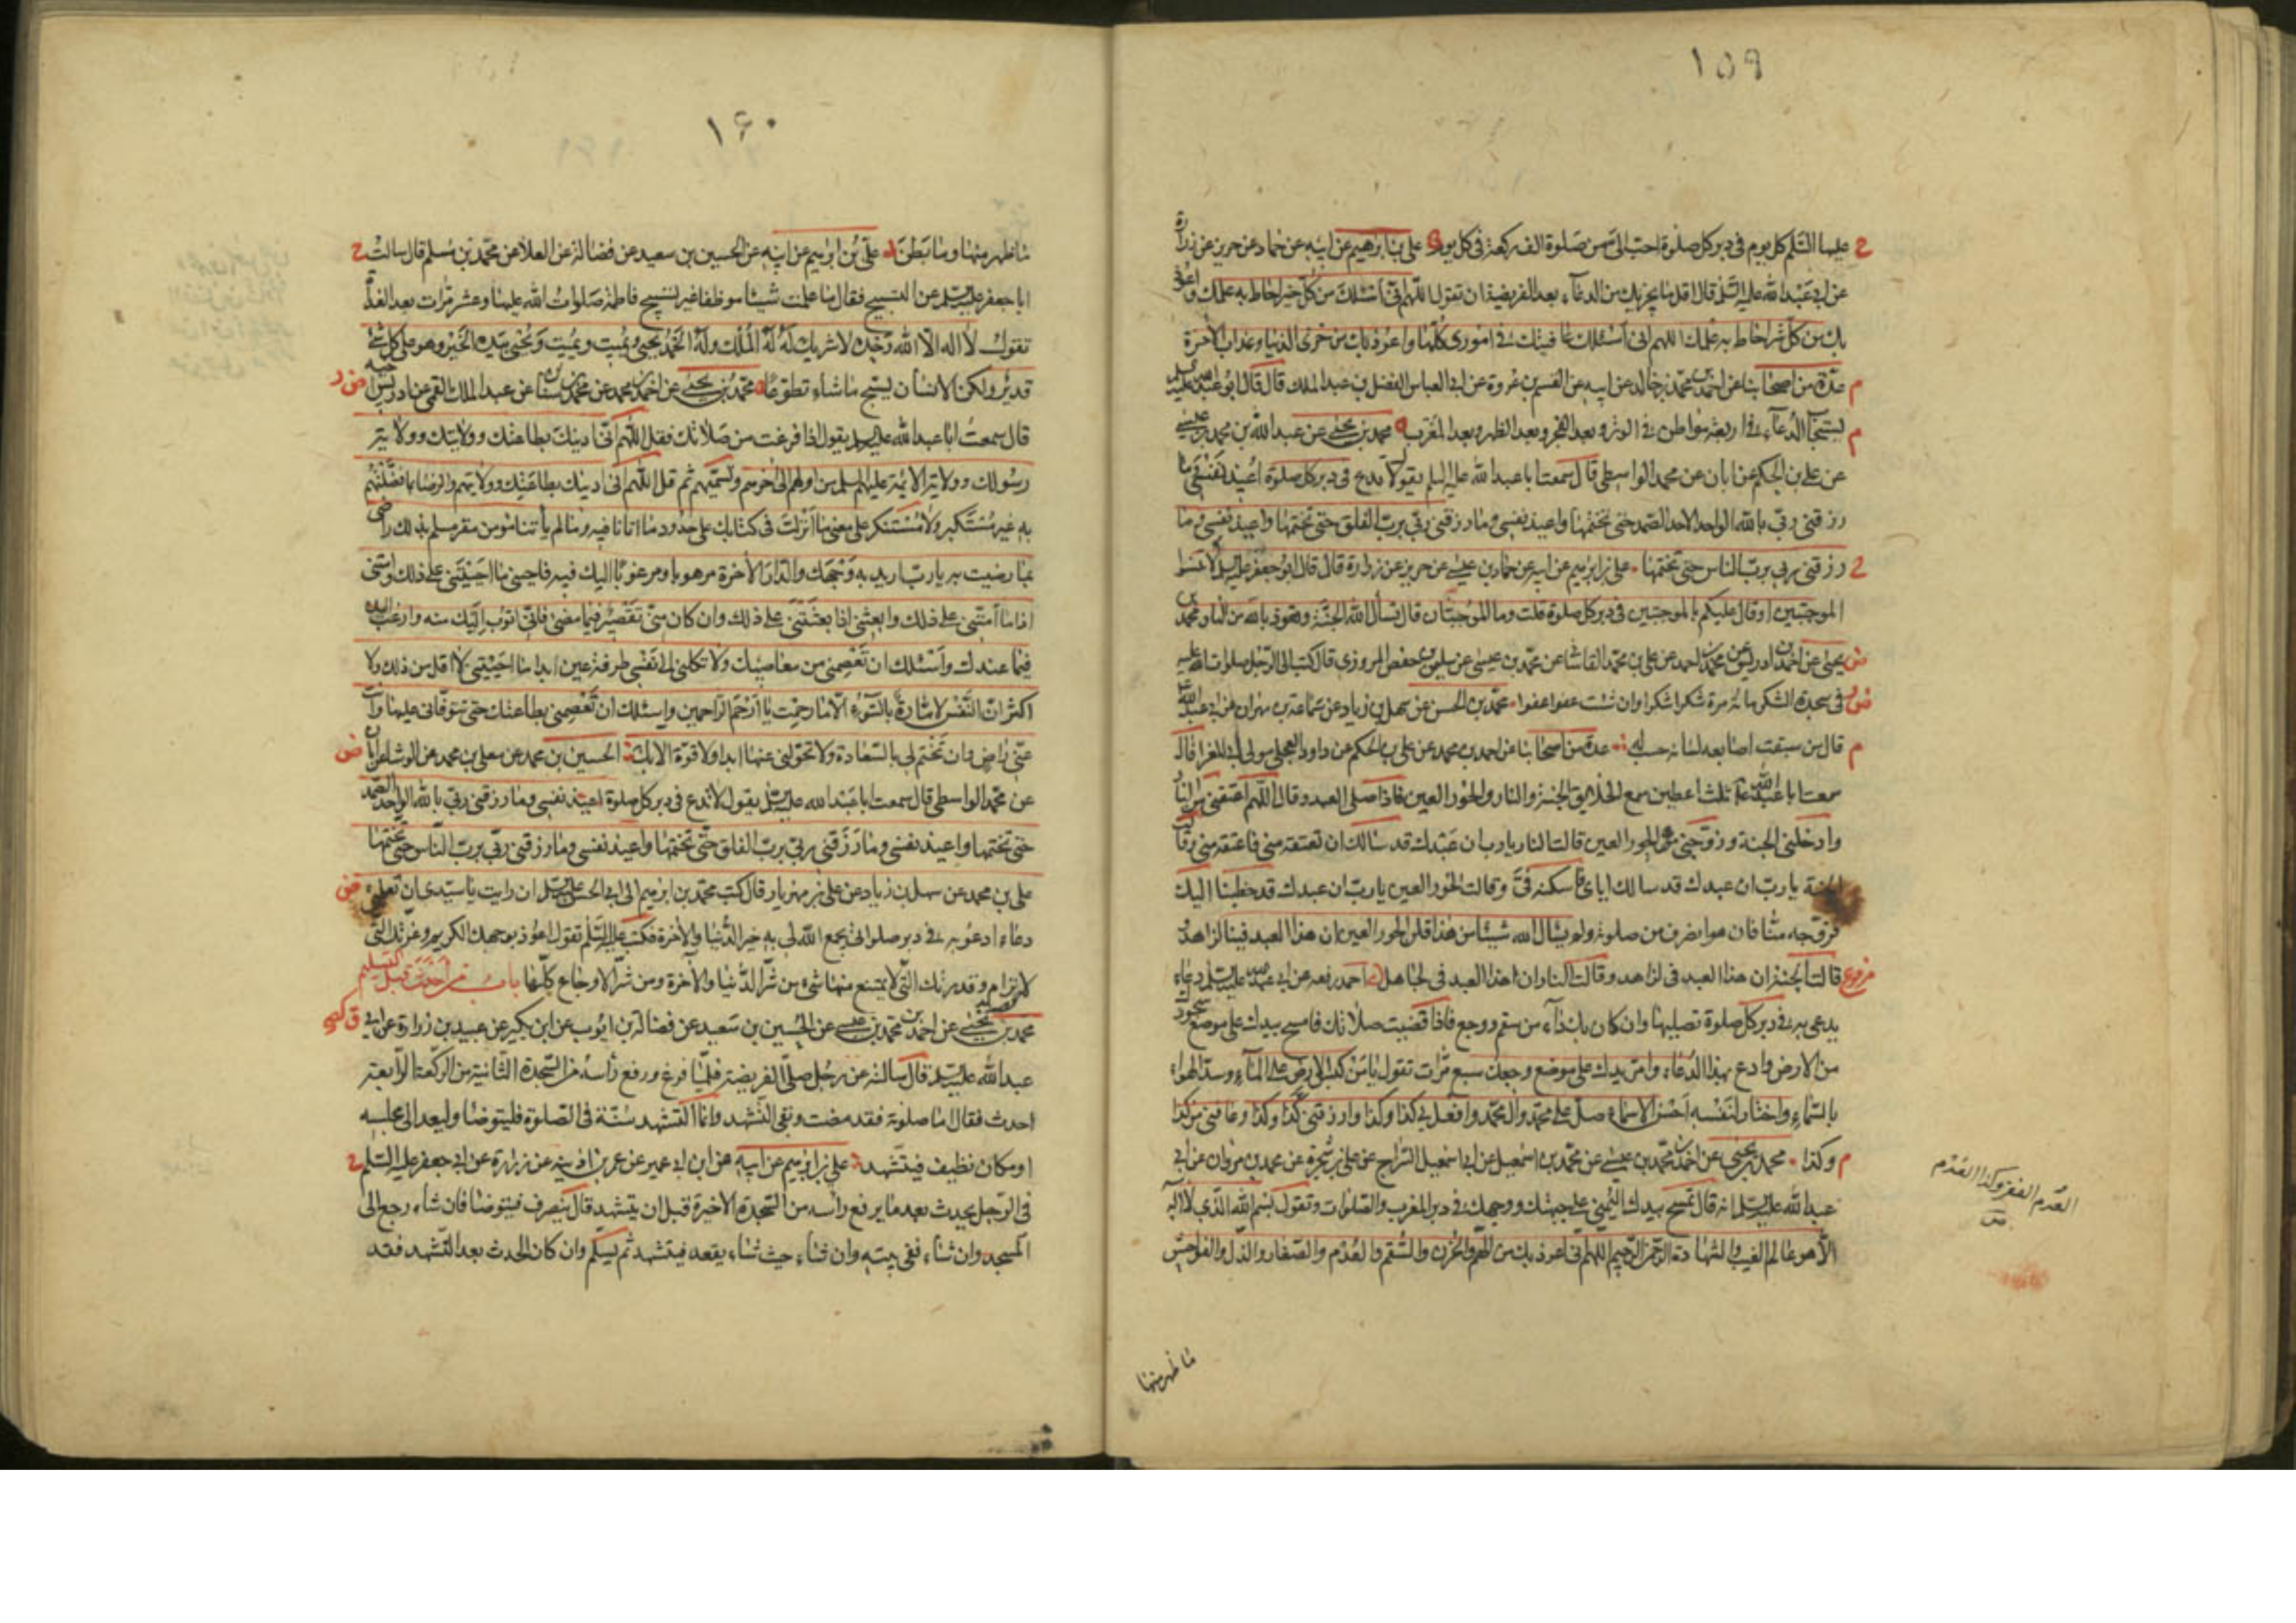 ١٥٩
عليها السلم كل يوم في دبر كل صلوة احب الى من صلوة الف ركعة في كل يوم علي بن ابرهيم عن ابيه عن حماد عن حريز عن زرارة
عن ابي عبد الله عليه السلم قال اقل ما يجزيك من الدعاء بعد الفريضة ان تقول اللهم اني اسئلك من كل خير احاط به علمك واعوذ
بك من كل شر احاط به علمك اللهم اني اسئلك عافيتك في اموري كلها واعوذ بك من خزى الدنيا وعذاب الاخرة
عدة من اصحابنا عن احمد بن محمد بن خالد عن ابيه عن القسم بن عروة عن ابي العباس الفضل بن عبد الملك قال قال ابو عبد الله عليه
يستجاب الدعاء في اربعة مواطن في الوتر وبعد الفجر وبعد الظهر وبعد المغرب محمد بن يحيى عن عبد الله بن محمد بن عيسى
عن علي بن الحكم عن ابان عن محمد الواسطي قال سمعت ابا عبد الله عليه السلم يقول لا تدع في دبر كل صلوة اعيذ نفسي وما
رزقني ربي بالله الواحد الاحد الصمد حتى تختمها واعيذ نفسي وما رزقني ربي برب الفلق حتى تختمها واعيذ نفسي وما
رزقني ربي برب الناس حتى تختمها علي بن ابرهيم عن ابيه عن حماد بن عيسى عن حريز عن زرارة قال قال ابو جعفر عليه السلم لا تنسوا
الموجبتين او قال عليكم بالموجبتين في دبر كل صلوة قلت وما الموجبتان قال تسأل الله الجنة وتعوذ بالله من النار محمد بن
يحيى عن احمد بن ادريس عن محمد بن احمد عن علي بن محمد القاشا عن محمد بن عيسى عن سليمن بن حفص المروزي قال كتب الى الرجل صلوات الله عليه
في سجدة الشكر مائة مرة شكرا شكرا وان شئت عفوا عفوا محمد بن الحسن عن سهل بن زياد عن سماعة بن مهران عن ابي عبد الله
قال من سبقت اصابعه لسانه حسب له عدة من اصحابنا عن احمد بن محمد عن علي بن الحكم عن داود العجلي مولى ابي المغرا قال
سمعت ابا عبد الله ع ثلث اعطين سمع الخلايق الجنة والنار والحور العين فاذا صلى العبد وقال اللهم اعتقني من النار
وادخلني الجنة وزوجني من الحور العين قالت النار يا رب ان عبدك قد سالك ان تعتقه مني فاعتقه مني وقالت
الجنة يا رب ان عبدك قد سالك اياي فاسكنه في وقالت الحور العين يا رب ان عبدك قد خطبنا اليك
فزوجه منا فان هو انصرف من صلوته ولم يسال الله شيئا من هذا قلن الحور العين ان هذا العبد فينا لزاهد
قالت الجنة ان هذا العبد في لزاهد وقالت النار ان هذا العبد في لجاهل احمد رفعه عن ابي عبد الله عليه السلم دعاء
يدعى به في دبر كل صلوة تصليها وان كان بك داء من سقم ووجع فاذا قضيت صلاتك فامسح بيدك على موضع سجودك
من الارض وادع بهذا الدعاء وامر بيدك على موضع وجعك سبع مرات تقول يا من كبس الارض على الماء وسد الهواء
بالسماء واختار لنفسه احسن الاسماء صل على محمد وال محمد وافعل بي كذا وكذا وارزقني كذا وكذا وعافني من كذا
وكذا محمد بن يحيى عن احمد بن محمد بن عيسى عن محمد بن اسمعيل عن ابي اسمعيل السراج عن علي بن شجرة عن محمد بن مروان عن ابي
عبد الله عليه السلم انه قال تمسح بيدك اليمنى على جبهتك ووجهك في دبر المغرب والصلوات وتقول بسم الله الذي لا اله
الا هو عالم الغيب والشهادة الرحمن الرحيم اللهم اني اعوذ بك من الهم والحزن والسقم والعدم والصغار والذل والفواحش
العدم الفقر وكذا العدم
ما ظهر منها
١٦٠
ما ظهر منها وما بطن علي بن ابرهيم عن ابيه عن الحسين بن سعيد عن فضالة عن العلا عن محمد بن مسلم قال سالت
ابا جعفر عليه السلم عن التسبيح فقال ما علمت شيئا موظفا غير تسبيح فاطمة صلوات الله عليها وعشر مرات بعد الغداة
تقول لا اله الا الله وحده لا شريك له له الملك وله الحمد يحيى ويميت ويميت ويحيى بيده الخير وهو على كل شئ
قدير ولكن الانسان يسبح ما شاء تطوعا محمد بن يحيى عن احمد بن محمد عن محمد بن سنان عن عبد الملك القمي عن ادريس اخيه
قال سمعت ابا عبد الله عليه السلم يقول اذا فرغت من صلاتك فقل اللهم اني ادينك بطاعتك وولايتك وولاية
رسولك وولاية الائمة عليهم السلم من اولهم الى اخرهم وتسميهم ثم قل اللهم اني ادينك بطاعتك وولايتهم والرضا بما فضلتهم
به غير متكبر ولا مستنكر على معنى ما انزلت في كتابك على حدود ما اتانا فيه وما لم يأتنا مؤمن مقر مسلم بذلك راض
بما رضيت به يا رب اريد به وجهك والدار الاخرة مرهوبا ومرغوبا اليك فيه فاحيني ما احييتني على ذلك وامتني
اذا امتني على ذلك وابعثني اذا بعثتني على ذلك وان كان مني تقصير فيما مضى فاني اتوب اليك منه وارغب اليك
فيما عندك واسئلك ان تعصمني من معاصيك ولا تكلني الى نفسي طرفة عين ابدا ما احييتني لا اقل من ذلك ولا
اكثر ان النفس لامارة بالسوء الا ما رحمت يا ارحم الراحمين واسئلك ان تعصمني بطاعتك حتى تتوفاني عليها وانت
عني راض وان تختم لي بالسعادة ولا تحولني عنها ابدا ولا قوة الا بك الحسين بن محمد عن معلى بن محمد عن الوشا عن ابان
عن محمد الواسطي قال سمعت ابا عبد الله عليه السلم يقول لا تدع في دبر كل صلوة اعيذ نفسي وما رزقني ربي بالله الواحد الصمد
حتى تختمها واعيذ نفسي وما رزقني ربي برب الفلق حتى تختمها واعيذ نفسي وما رزقني ربي برب الناس حتى تختمها
علي بن محمد عن سهل بن زياد عن علي بن مهزيار قال كتب محمد بن ابرهيم الى ابي الحسن عليه السلم ان رايت يا سيدي ان تعلمني
دعاء ادعو به في دبر صلواتي يجمع الله لي به خير الدنيا والاخرة فكتب عليه السلم تقول اعوذ بوجهك الكريم وعزتك التي
لا ترام وقدرتك التي لا يمتنع منها شئ من شر الدنيا والآخرة ومن شر الاوجاع كلها باب من احدث قبل التسليم
محمد بن يحيى عن احمد بن محمد بن عيسى عن الحسين بن سعيد عن فضالة بن ايوب عن ابن بكير عن عبيد بن زرارة عن ابي
عبد الله عليه السلم قال سالته عن رجل صلى الفريضة فلما فرغ ورفع رأسه من السجدة الثانية من الركعة الرابعة
احدث فقال اما صلوته فقد مضت وبقى التشهد وانما التشهد سنة في الصلوة فليتوضا وليعد الى مجلسه
او مكان نظيف فيتشهد علي بن ابرهيم عن ابيه عن ابن ابي عمير عن عمر بن اذينه عن زرارة عن ابي جعفر عليه السلم
في الرجل يحدث بعد ما يرفع راسه من السجدة الاخيرة قبل ان يتشهد قال ينصرف فيتوضا فان شاء رجع الى
المسجد وان شاء ففي بيته وان شاء حيث شاء يقعد فيتشهد ثم يسلم وان كان الحدث بعد التشهد فقد